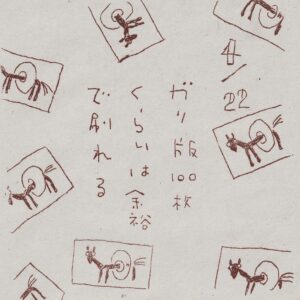 4/22
ガリ版100枚
くらいは余裕
で刷れる